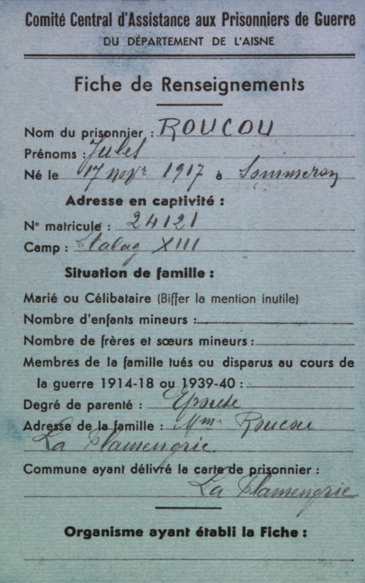 Comité Central d'Assistance aux Prisonniers de Guerre
DU DÉPARTEMENT DE L'AISNE
Fiche de Renseignements
Nom du prisonnier : ROUCOU
Prénoms : Jules
Né le 17 nov. 1917 à Sommeron
Adresse en captivité :
N° matricule : 24121
Camp : Stalag XIII
Situation de famille :
Marié ou Célibataire (Biffer la mention inutile)
Nombre d'enfants mineurs :
Nombre de frères et sœurs mineurs :
Membres de la famille tués ou disparus au cours de
la guerre 1914-18 ou 1939-40 :
Degré de parenté : Epouse
Adresse de la famille : Mme Roucou
La Flamengrie
Commune ayant délivré la carte de prisonnier :
La Flamengrie
Organisme ayant établi la Fiche :